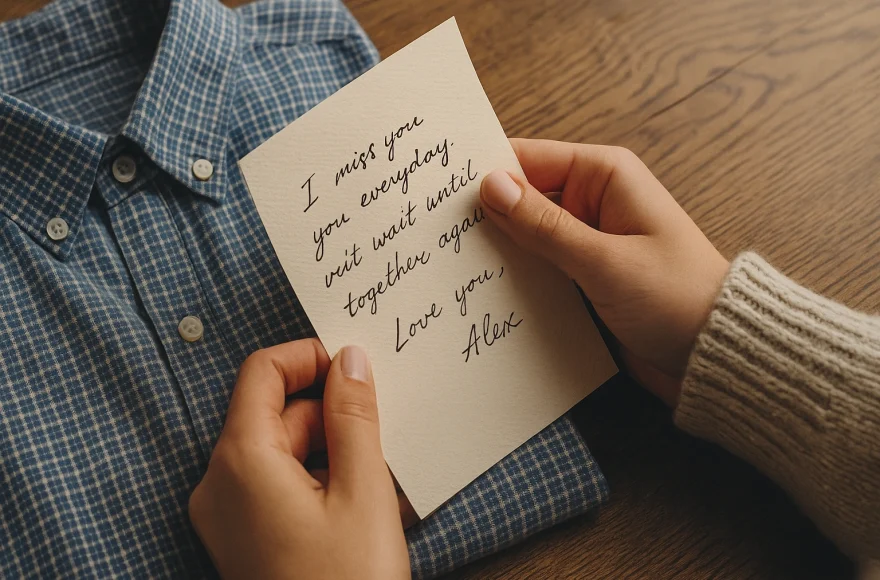 I miss you
you everyday.
wait until
together
Love you,
Alex